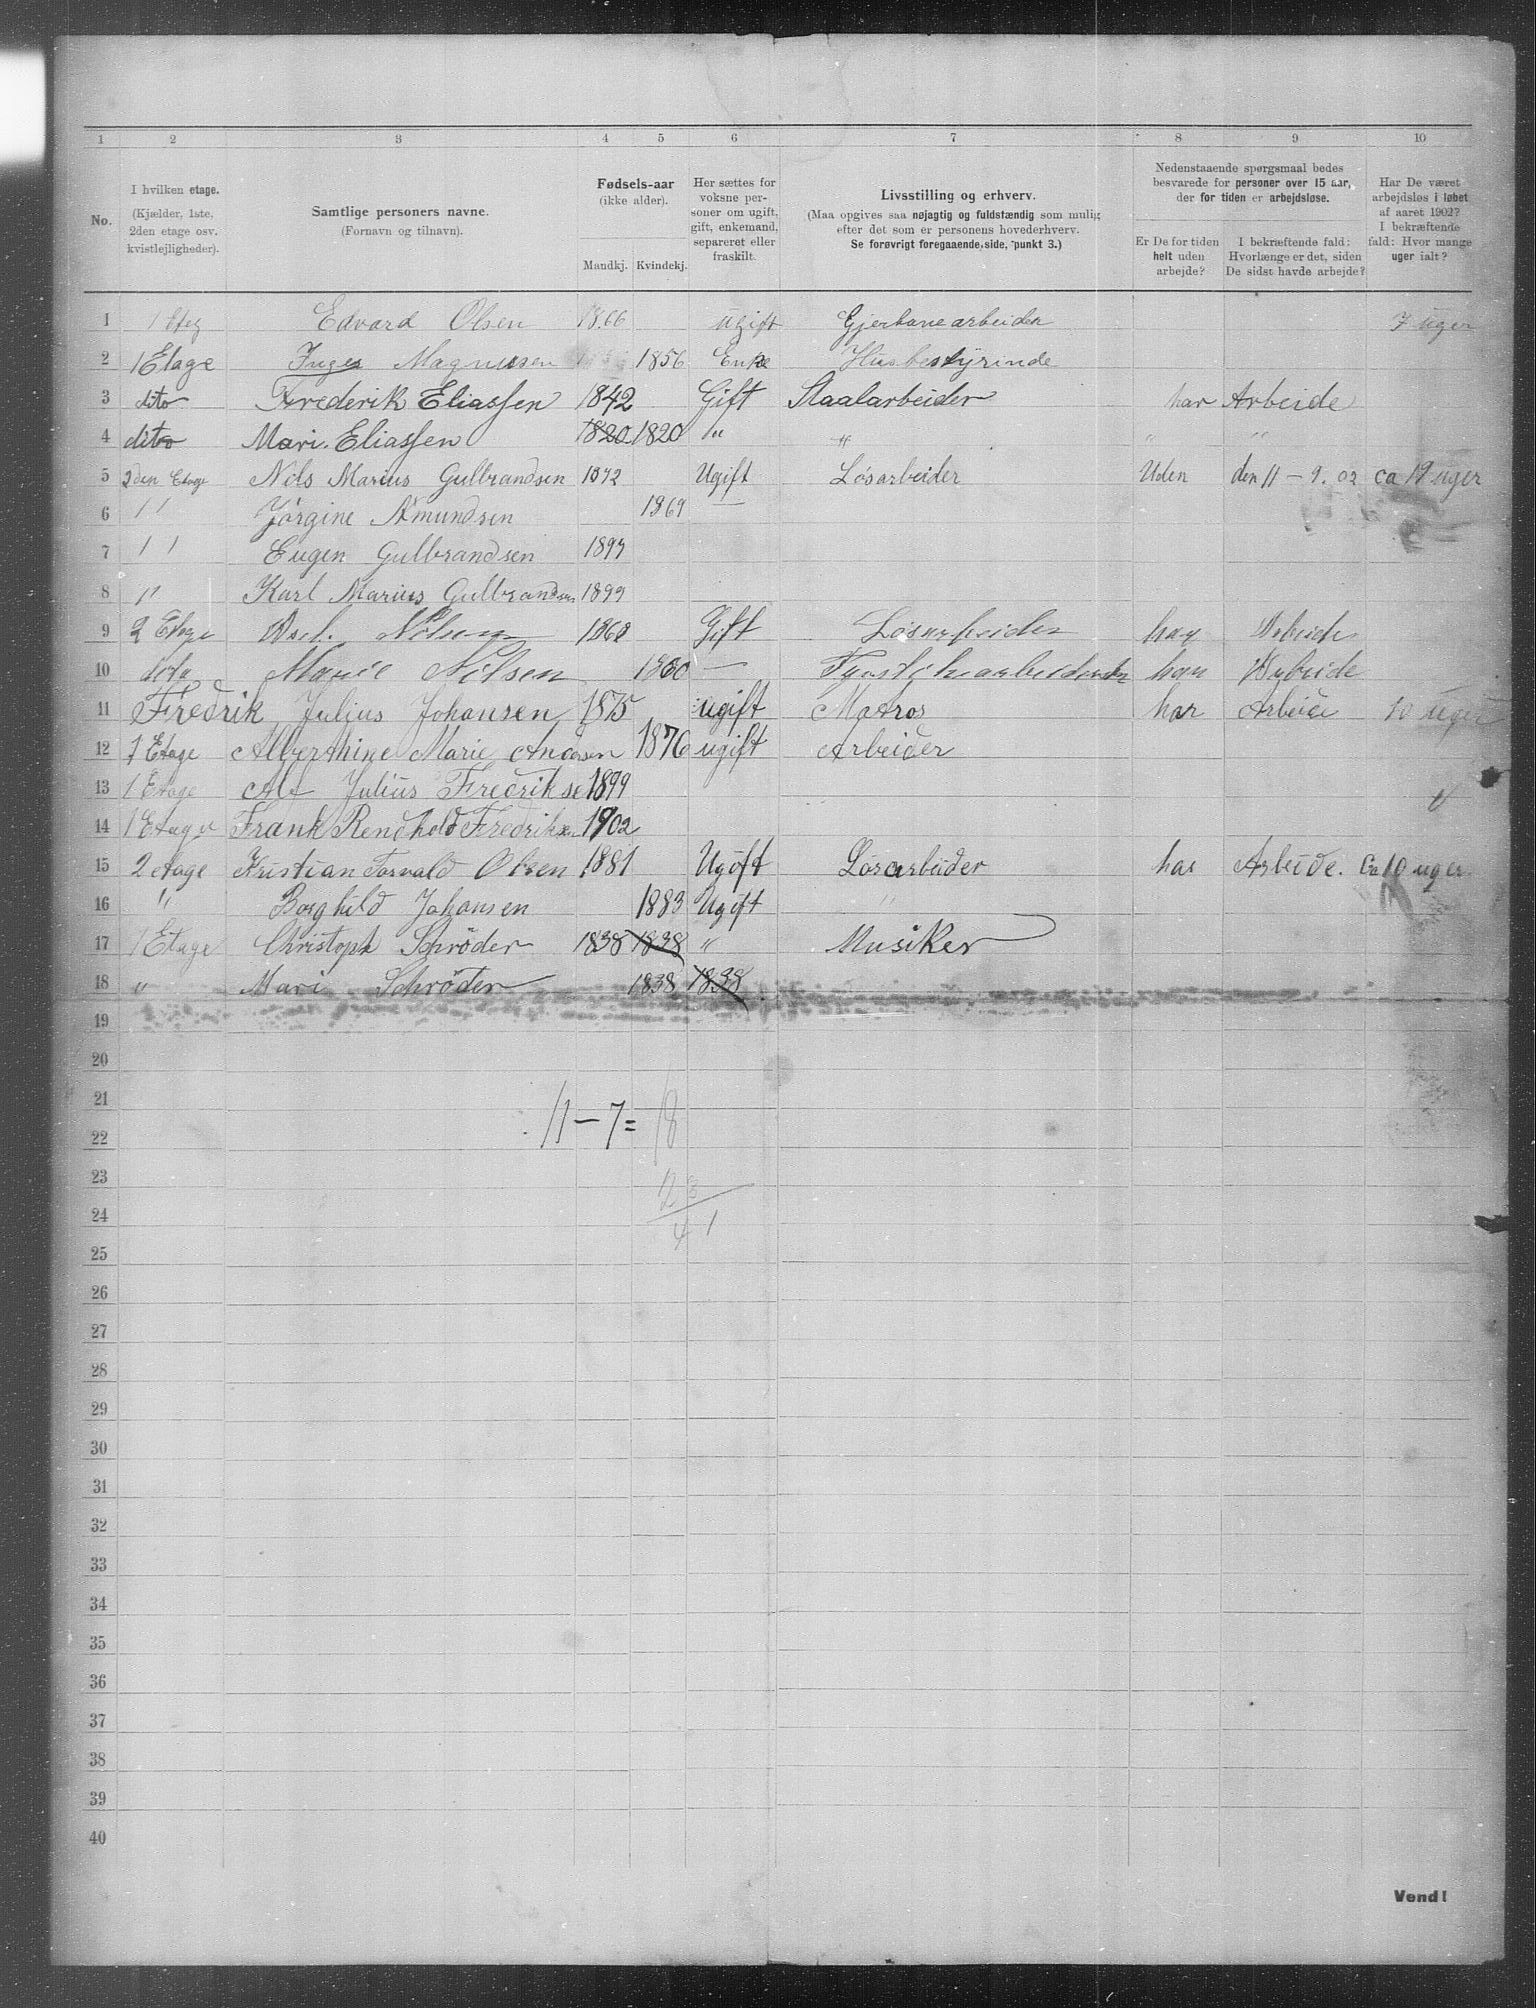 1 2 3 4 5 6 7 8 9 10
No.
I hvilken etage. (Kjælder, 1ste, 2den etage osv. kvistleiligheder).
Samtlige personers navne. (Fornavn og tilnavn).
Fødsels-aar (ikke alder). Mandkj. Kvindekj.
Her sættes for voksne personer om ugift, gift, enkemand, separeret eller fraskilt.
Livsstilling og erhverv.
(Maa opgives saa nøjagtig og fuldstændig som mulig efter det som er personens hovederhverv.
Se forøvrigt foregaaende side, punkt 3.)
Nedenstaaende spørgsmaal bedes besvarede for personer over 15 aar, der for tiden er arbejdsløse.
Er De for tiden helt uden arbejde?
I bekræftende fald: Hvorlænge er det, siden De sidst havde arbejde?
Har De været arbejdsløs i løbet af aaret 1902? I bekræftende fald: Hvor mange uger ialt?
1 1 Eteg Edvard Olsen 1866 ugift 7 uger
2 1 Etage Inger Magnussen 1856 Enke Husbestyrinde
3 dito Frederik Eliassen 1842 Gift Staalarbeider har Arbeide
4 dito Mari. Eliassen 1820 1820 " " " "
5 2den Etage Nils Marius Gulbrandsen 1872 Ugift Løsarbeider Uden den 11 – 9. 02 ca 19 uger
6 " Jørgine Amundsen 1869 —
7 " Eugen Gulbrandsen 1897
8 " Karl Marius Gulbrandsen 1899
9 2 Etage Nilsen 1868 Gift Løsarbeider har Arbeide
10 dito Marie Nilsen 1860 — har Arbeide
11 Fredrik Julius Johansen 1875 ugift Matros har Arbeide 10 uger
12 1 Etage Alberthine Marie Andersen 1876 ugift Arbeider
13 1 Etage Alf Julius Fredrikse 1899
14 1 Etage Frank Rendhold Fredriksen 1902
15 2 etage Kristian Torvald Olsen 1881 Ugift Løsarbeider har Arbeide. Ca 10 uger
16 " Borghild Johansen 1883 Ugift "
17 1 Etage Christoph Schrøder 1838 1838 " Musiker
18 " Mari Schrøder 1838 1838
19
20
21
11 – 7 = 18
22
23
23
24
41
25
26
27
28
29
30
31
32
33
34
35
36
37
38
39
40
Vend!